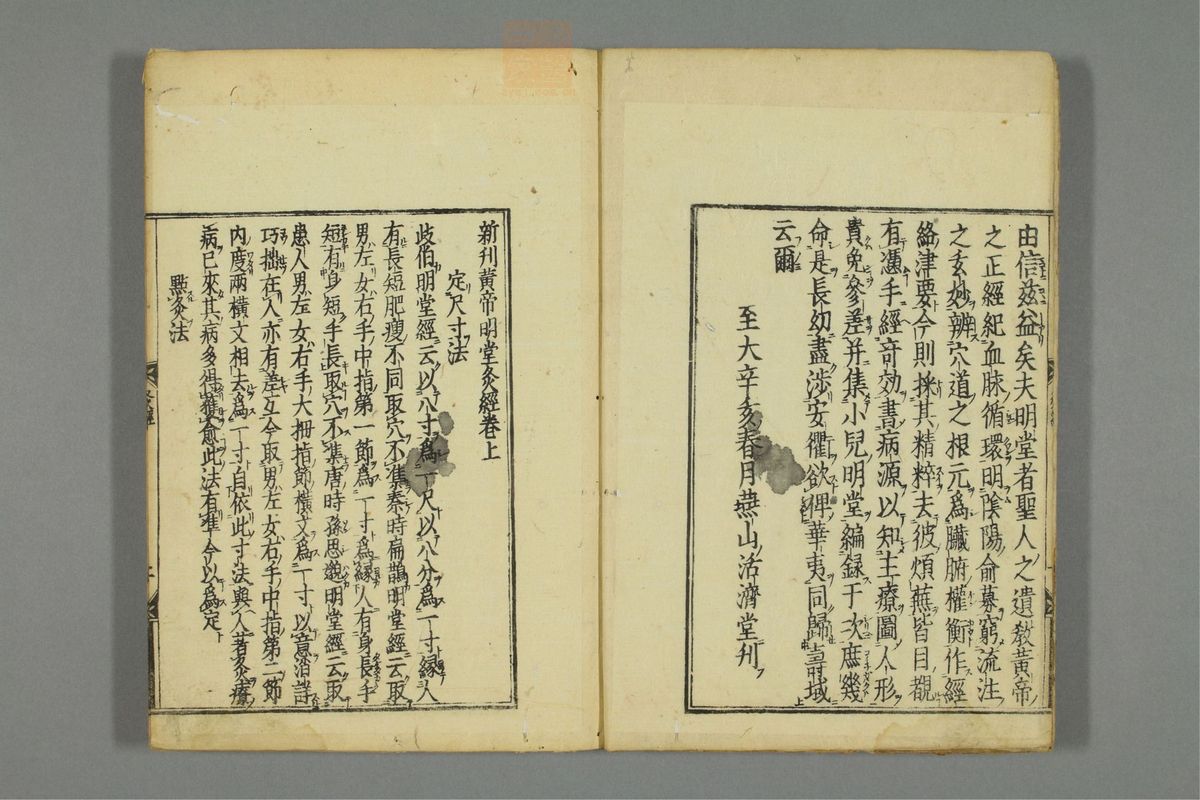 由信茲益矣夫明堂者聖人之遺教黃帝
之正經紀血脉循環明陰陽俞募窮流注
之玄妙辨穴道之根元為臟腑權衡作經
絡津要今則採其精粹去彼煩蕪皆目覩
有憑手經奇効書病源以知主療圖人形
貴免參差并集小兒明堂編録于次庶幾
命是長幼盡涉安衢欲俾華夷同歸壽域
云爾
至大辛亥春月燕山活濟堂刊
新刊黃帝明堂灸經卷上
定尺寸法
岐伯明堂經云以八寸為一尺以八分為一寸縁人
有長短肥瘦不同取穴不準秦時扁鵲明堂經云取
男左女右手中指第一節為一寸為縁人有身長手
短有身短手長取穴不準唐時孫思邈明堂經云取
患人男左女右手大拇指節橫文為一寸以意消詳
巧拙在人亦有差互今取男左女右手中指第二節
內度兩橫文相去為一寸自依此寸法與人著灸療
病已來其病多得獲愈此法有準今以為定
點灸法